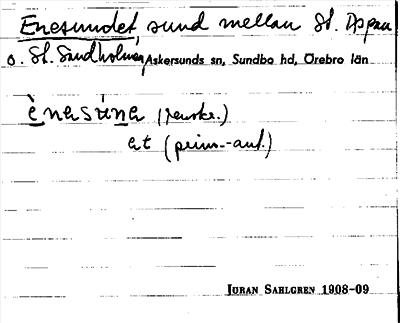 Enesundet sund mellan St. Appan
o. St. Sandholmen, Askersunds sn, Sundbo hd, Örebro län
ènasúna (renskr.)
at (prim.-auf.)
JURAN SAHLGREN 1908-09